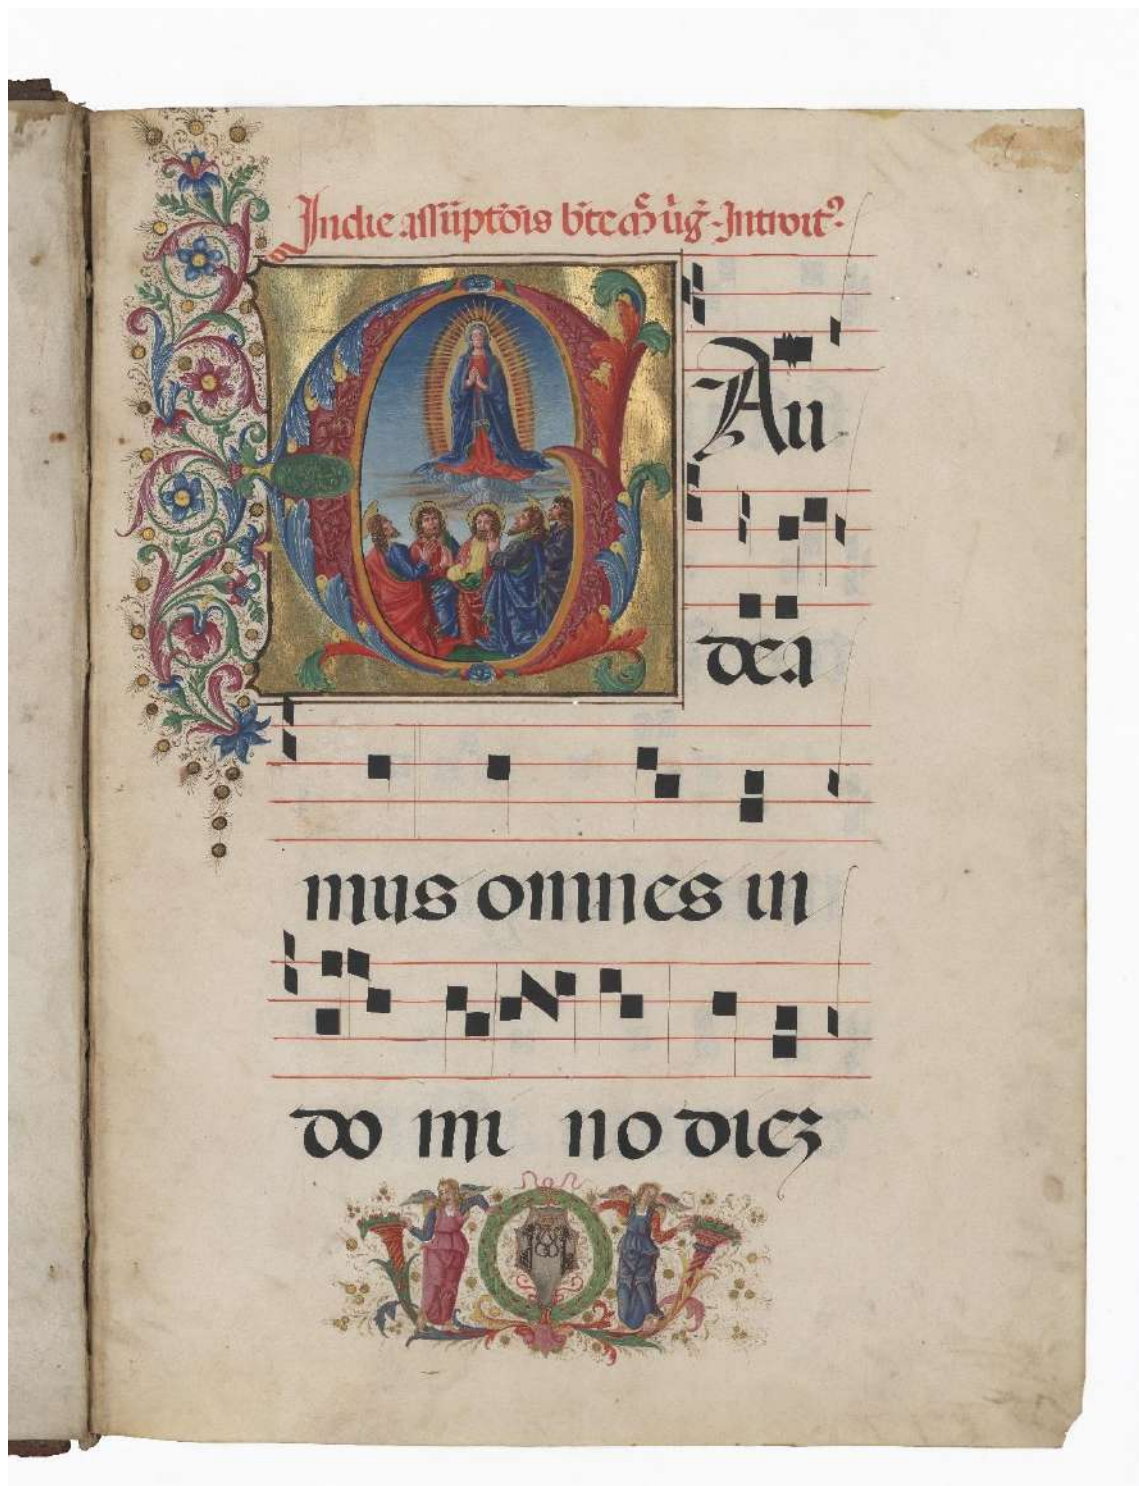 In die assũptõis bt̃e m̃ uĩg̃. Introitꝰ
GAu
dea
mus omnes in
do mi no dieʒ